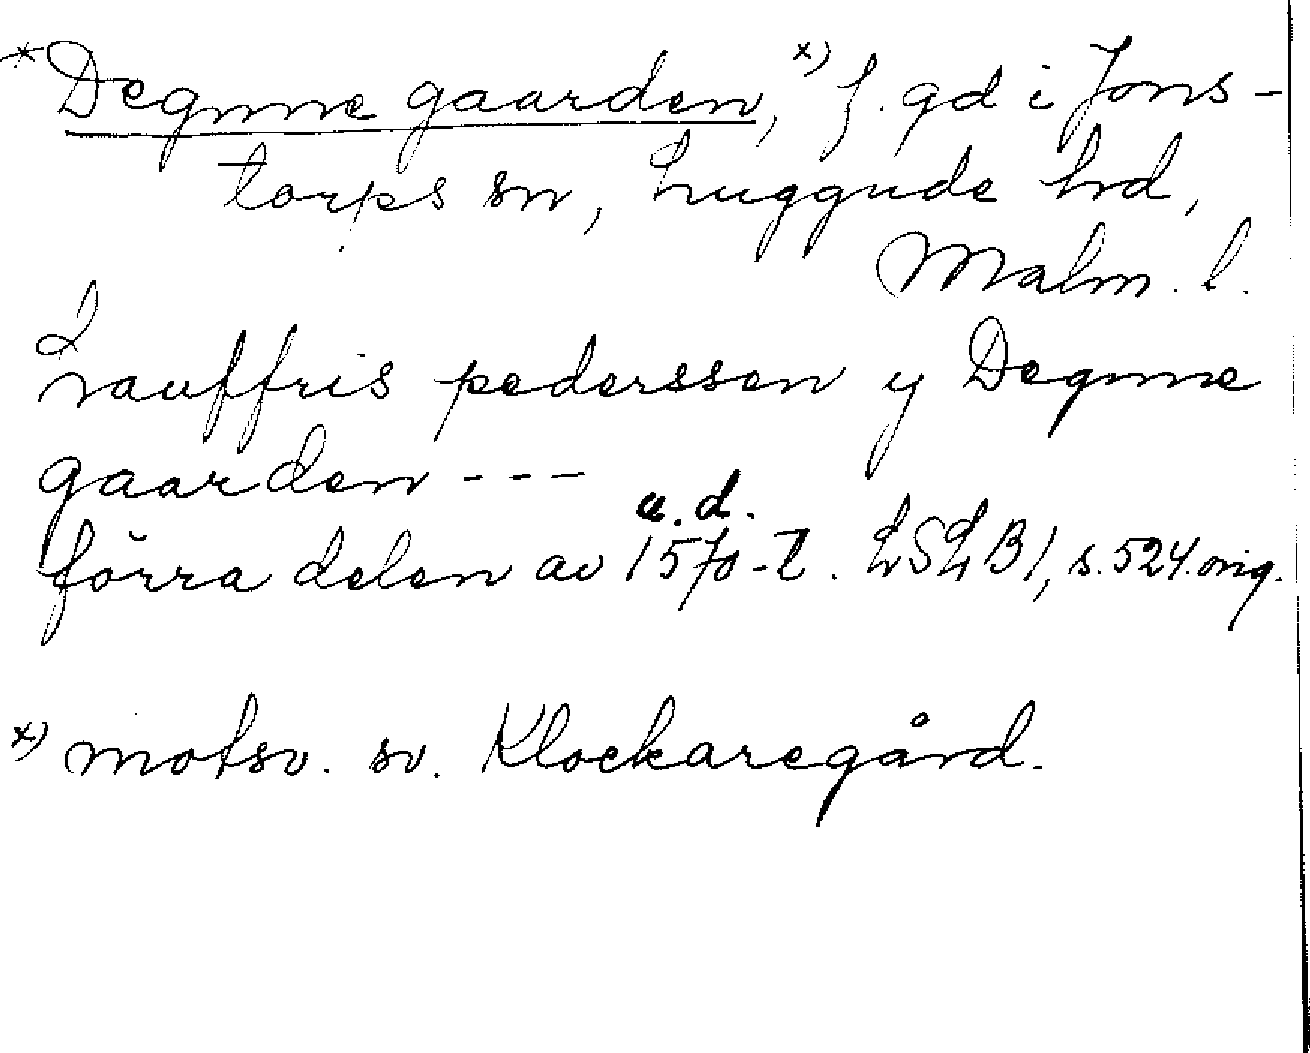 *Degnne gaarden, x) f. gd i Jons-
torps sn, Luggude hd,
Malm. l.
Lauffris pederssen y Degnne
gaarden ---
a. d.
förra delen av 1570-t. LSLB1, s. 524. orig.
x) motsv. sv. Klockaregård.